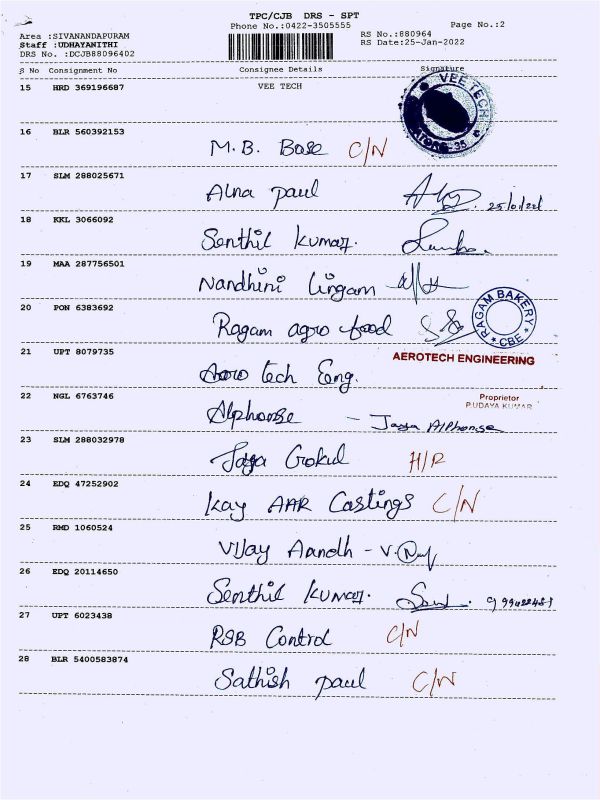 TPC/CJB DRS - SPT
Phone No.:0422-3505555
Page No.:2
Area :SIVANANDAPURAM
Staff :UDHAYANITHI
DRS No. :DCJB88096402
RS No.:880964
RS Date:25-Jan-2022
S No Consignment No Consignee Details Signature
15 HRD 369196687 VEE TECH
VEE TECH
35
16 BLR 560392153
M.B. Base C/N
17 SLM 288025671
Alna paul
25/01/22
18 KKL 3066092
Senthil Kumar.
19 MAA 287756501
Nandhini lingam
20 PON 6383692
Ragam agro food
RAGAM BAKERY
* CBE *
21 UPT 8079735
AEROTECH ENGINEERING
Aero tech Eng.
22 NGL 6763746
Proprietor
P.UDAYA KUMAR
Alphonse - Jaya Alphonse
23 SLM 288032978
Jaya Gokul H/R
24 EDQ 47252902
Kay AAR Castings C/N
25 RMD 1060524
Vijay Aandh - V.
26 EDQ 20114650
Senthil Kumar.
27 UPT 6023438
RSB Control C/N
28 BLR 5400583874
Sathish paul C/N